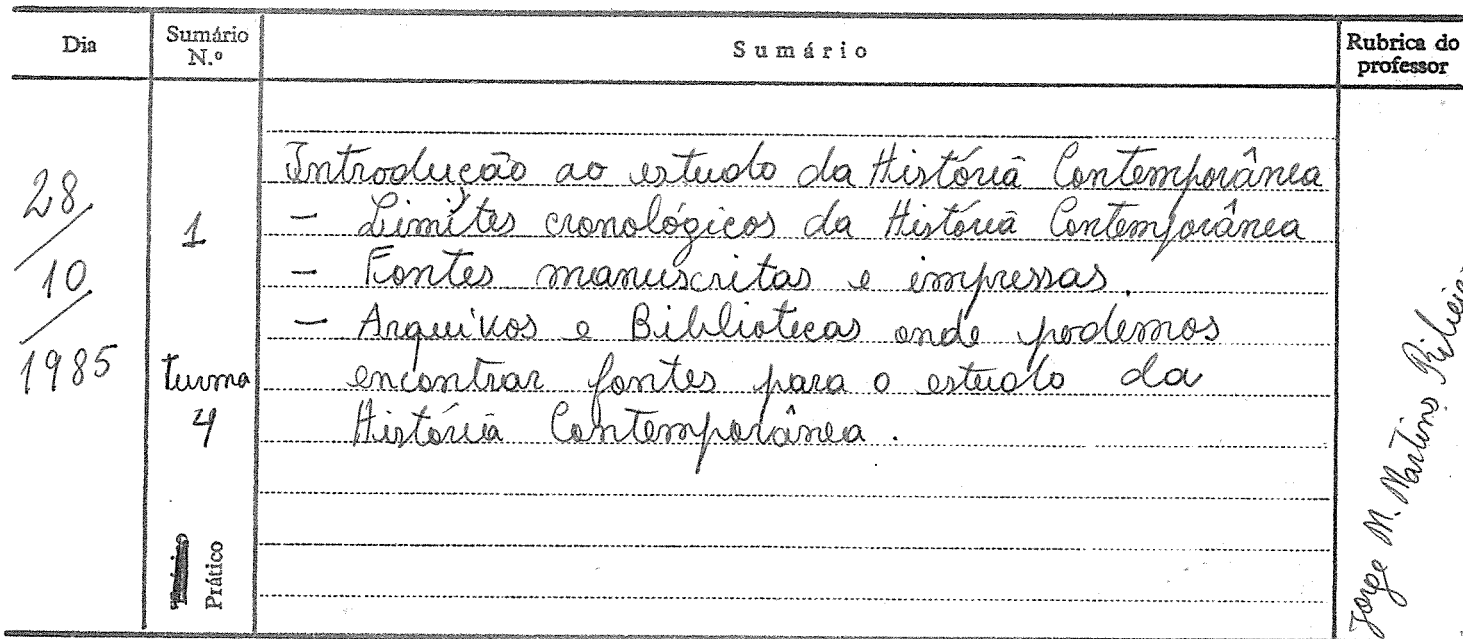 Dia
Sumário N.º
Sumário
Rubrica do professor
28/10/1985
1
turma 4
Prático
Introdução ao estudo da História Contemporânea
- Limites cronológicos da História Contemporânea
- Fontes manuscritas e impressas.
- Arquivos e Bibliotecas onde podemos
encontrar fontes para o estudo da
História Contemporânea.
Jorge M. Martins Ribeiro